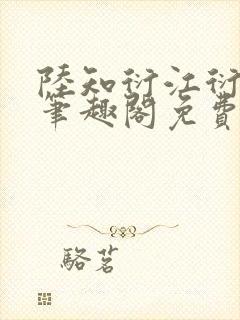 陸知衍江衍
筆趣閣免費
駱茗